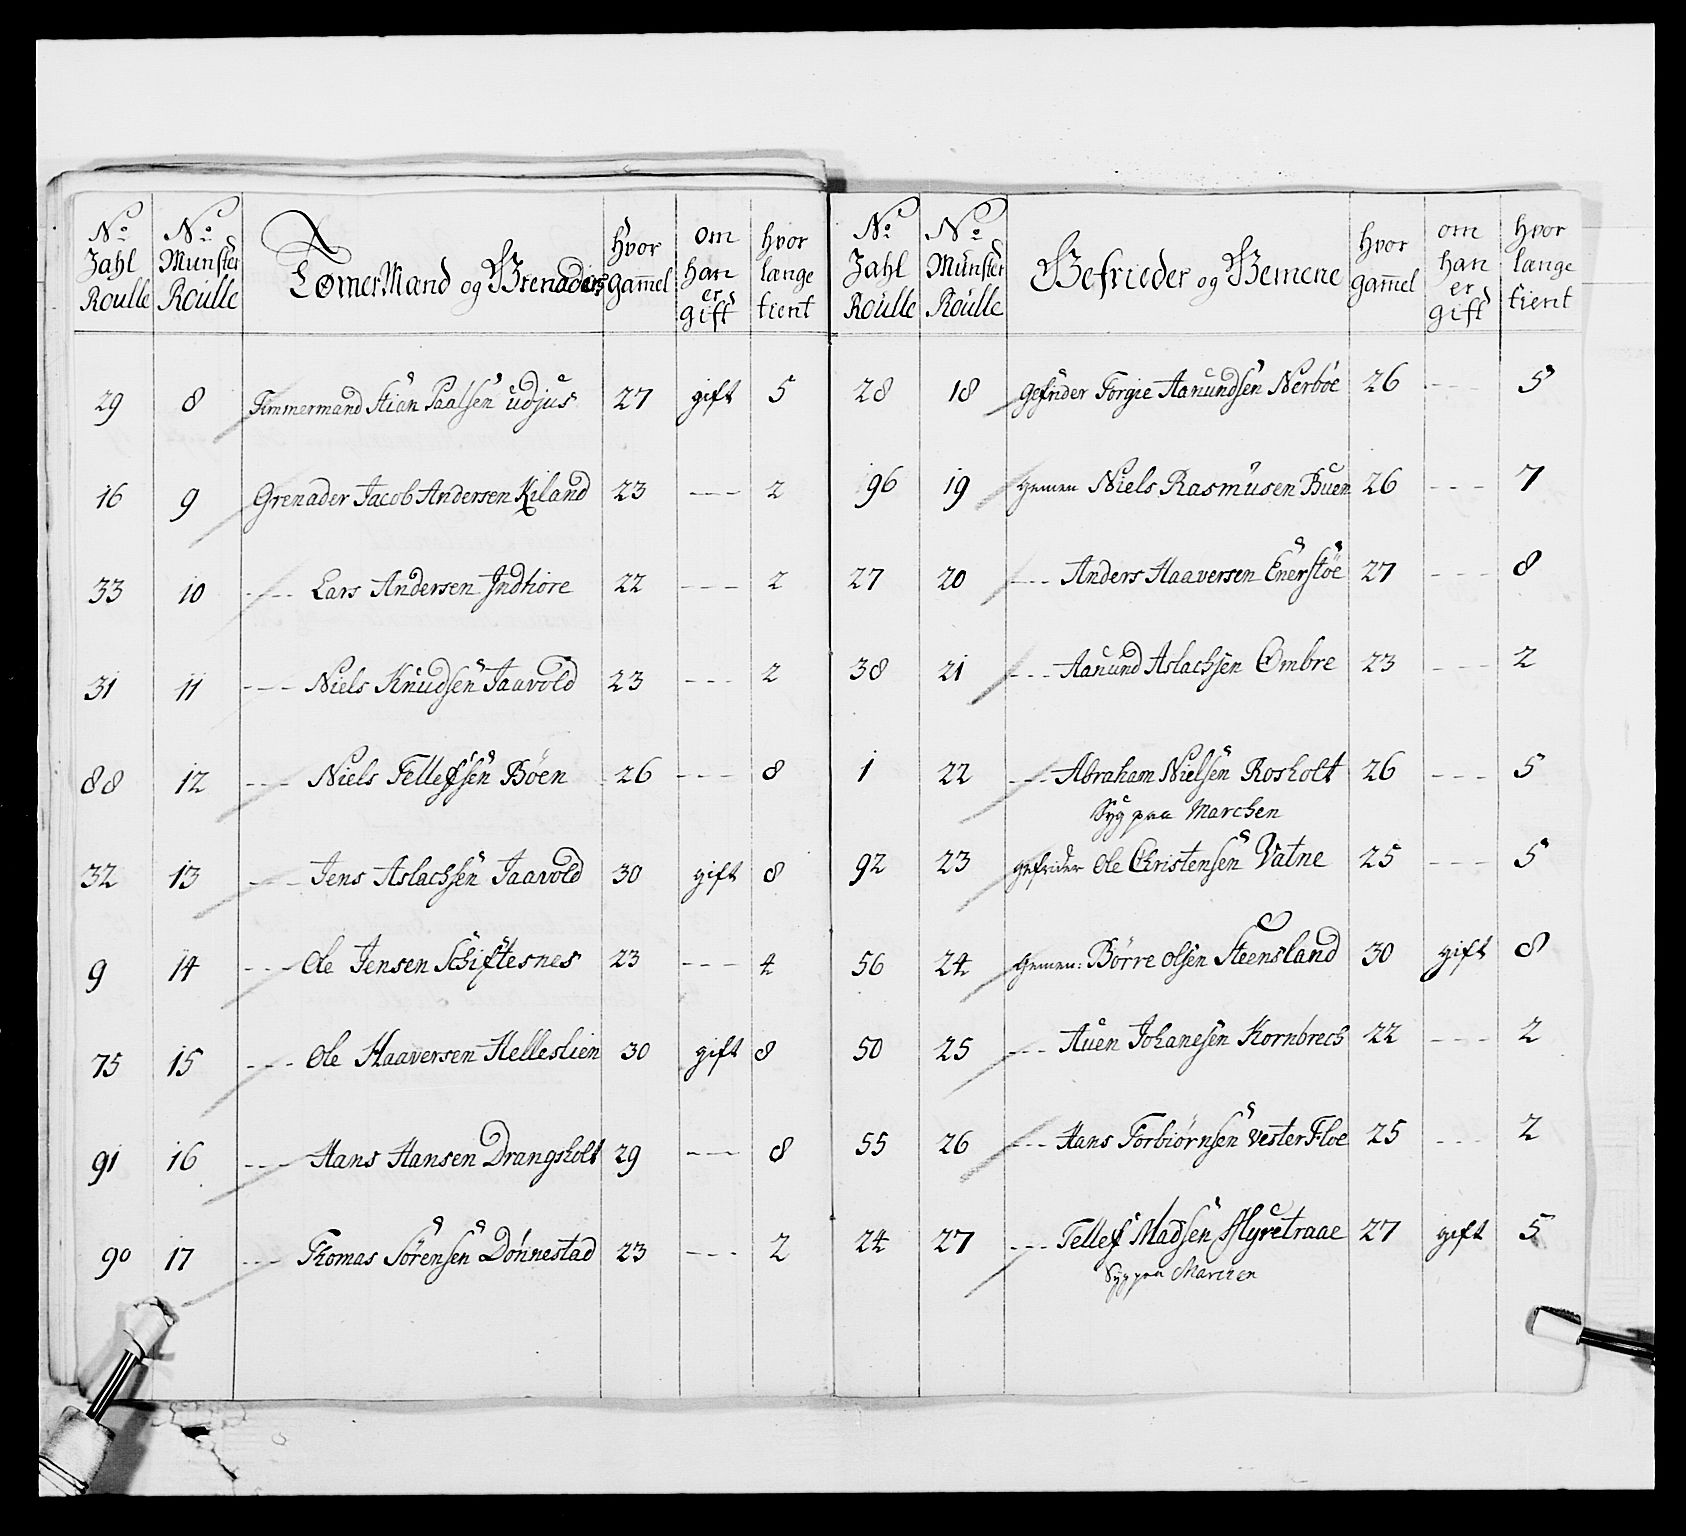 No Zahl Roulle | No Munster Roulle | TømerMand og Grenaders | Hvor gamel | om han er gift | hvor lange tient
29 | 8 | Timmermand Stian Paalsen udjus | 27 | gift | 5
16 | 9 | Grenader Jacob Andersen Kiland | 23 | --- | 2
33 | 10 | --- Lars Andersen Indhore | 22 | --- | 2
31 | 11 | --- Niels Knudsen Jaavold | 23 | --- | 2
88 | 12 | --- Niels Tellefsen Bøen | 26 | --- | 8
32 | 13 | --- Jens Aslachsen Jaavold | 30 | gift | 8
9 | 14 | --- Ole Jensen Schiftesnes | 23 | --- | 4
75 | 15 | --- Ole Haaversen Helleslien | 30 | gift | 8
91 | 16 | --- Hans Hansen Drangsholt | 29 | --- | 8
90 | 17 | --- Thomas Sörensen Dønnestad | 23 | --- | 2
No Zahl Roulle | No Munster Roulle | Gefrieder og Gemene | Hvor gamel | om han er gift | hvor lange tient
28 | 18 | Gefrider Torgie Aanundsen Nerbøe | 26 | --- | 5
96 | 19 | Gemen Niels Rasmusen Buen | 26 | --- | 7
27 | 20 | --- Anders Haaversen Enerstøe | 27 | --- | 8
38 | 21 | --- Aanund Aslachsen Ombre | 23 | --- | 2
1 | 22 | --- Abraham Nielsen Rosholt | 26 | --- | 5
Syg paa Marchen
92 | 23 | gefrider Ole Christensen Vatne | 25 | --- | 5
56 | 24 | Gemen: Börre olsen Steensland | 30 | gift | 8
50 | 25 | --- Auen Johanesen Kornbrech | 22 | --- | 2
55 | 26 | --- Hans Torbiørnsen vester Floe | 25 | --- | 2
24 | 27 | --- Tellef Madsen Myretraae | 27 | gift | 5
Syg paa Marchen